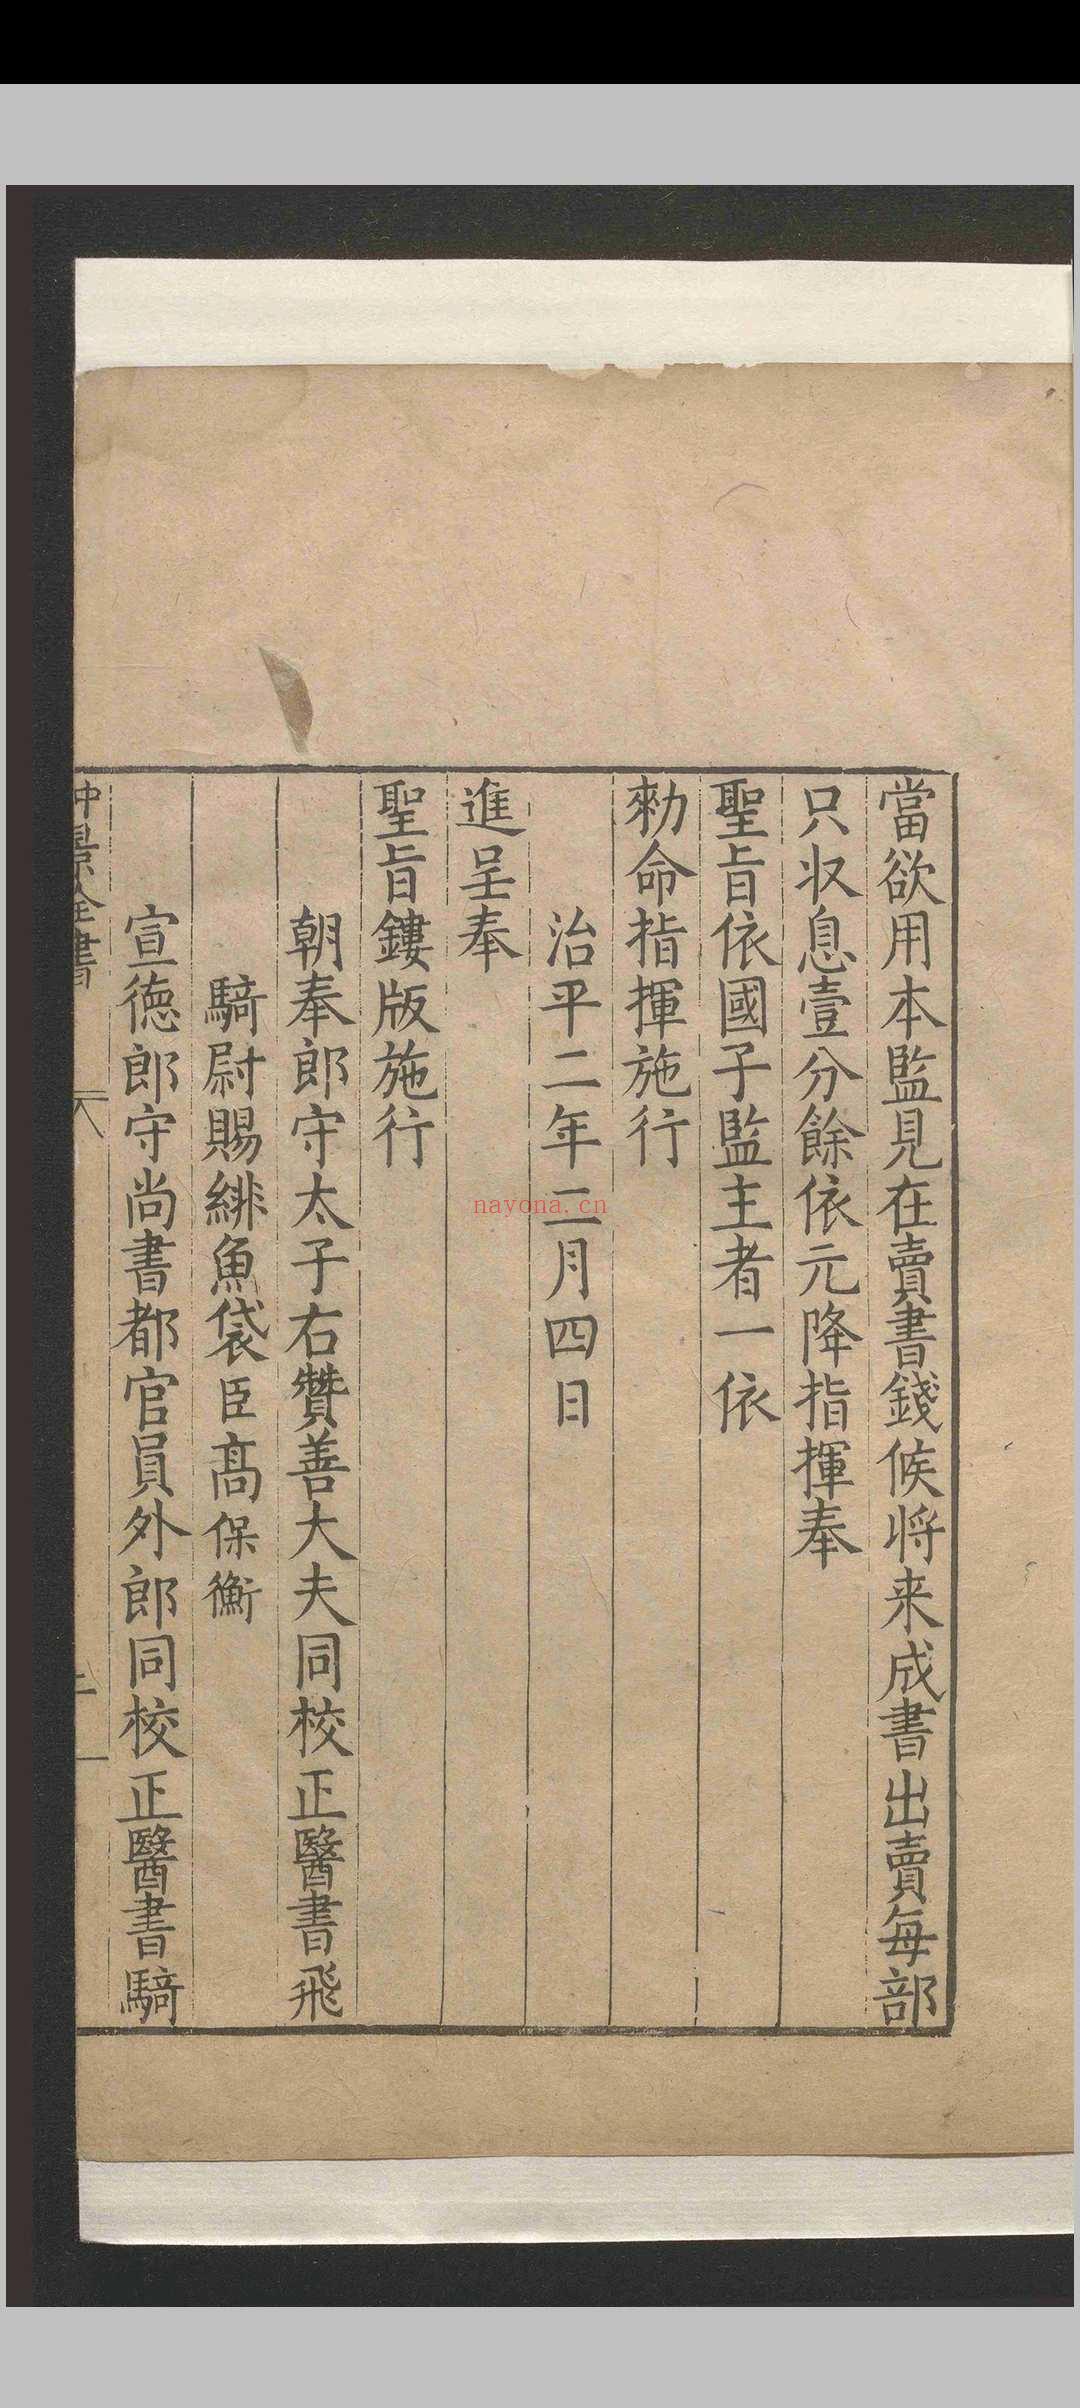 當欲用本監見在賣書錢候将来成書出賣每部
只収息壹分餘依元降指揮奉
聖旨依國子監主者一依
勑命指揮施行
治平二年二月四日
進呈奉
聖旨鏤版施行
朝奉郎守太子右贊善大夫同校正醫書飛
騎尉賜緋魚袋臣髙保衡
宣德郎守尚書都官員外郎同校正醫書騎
仲景全書
nayona.cn